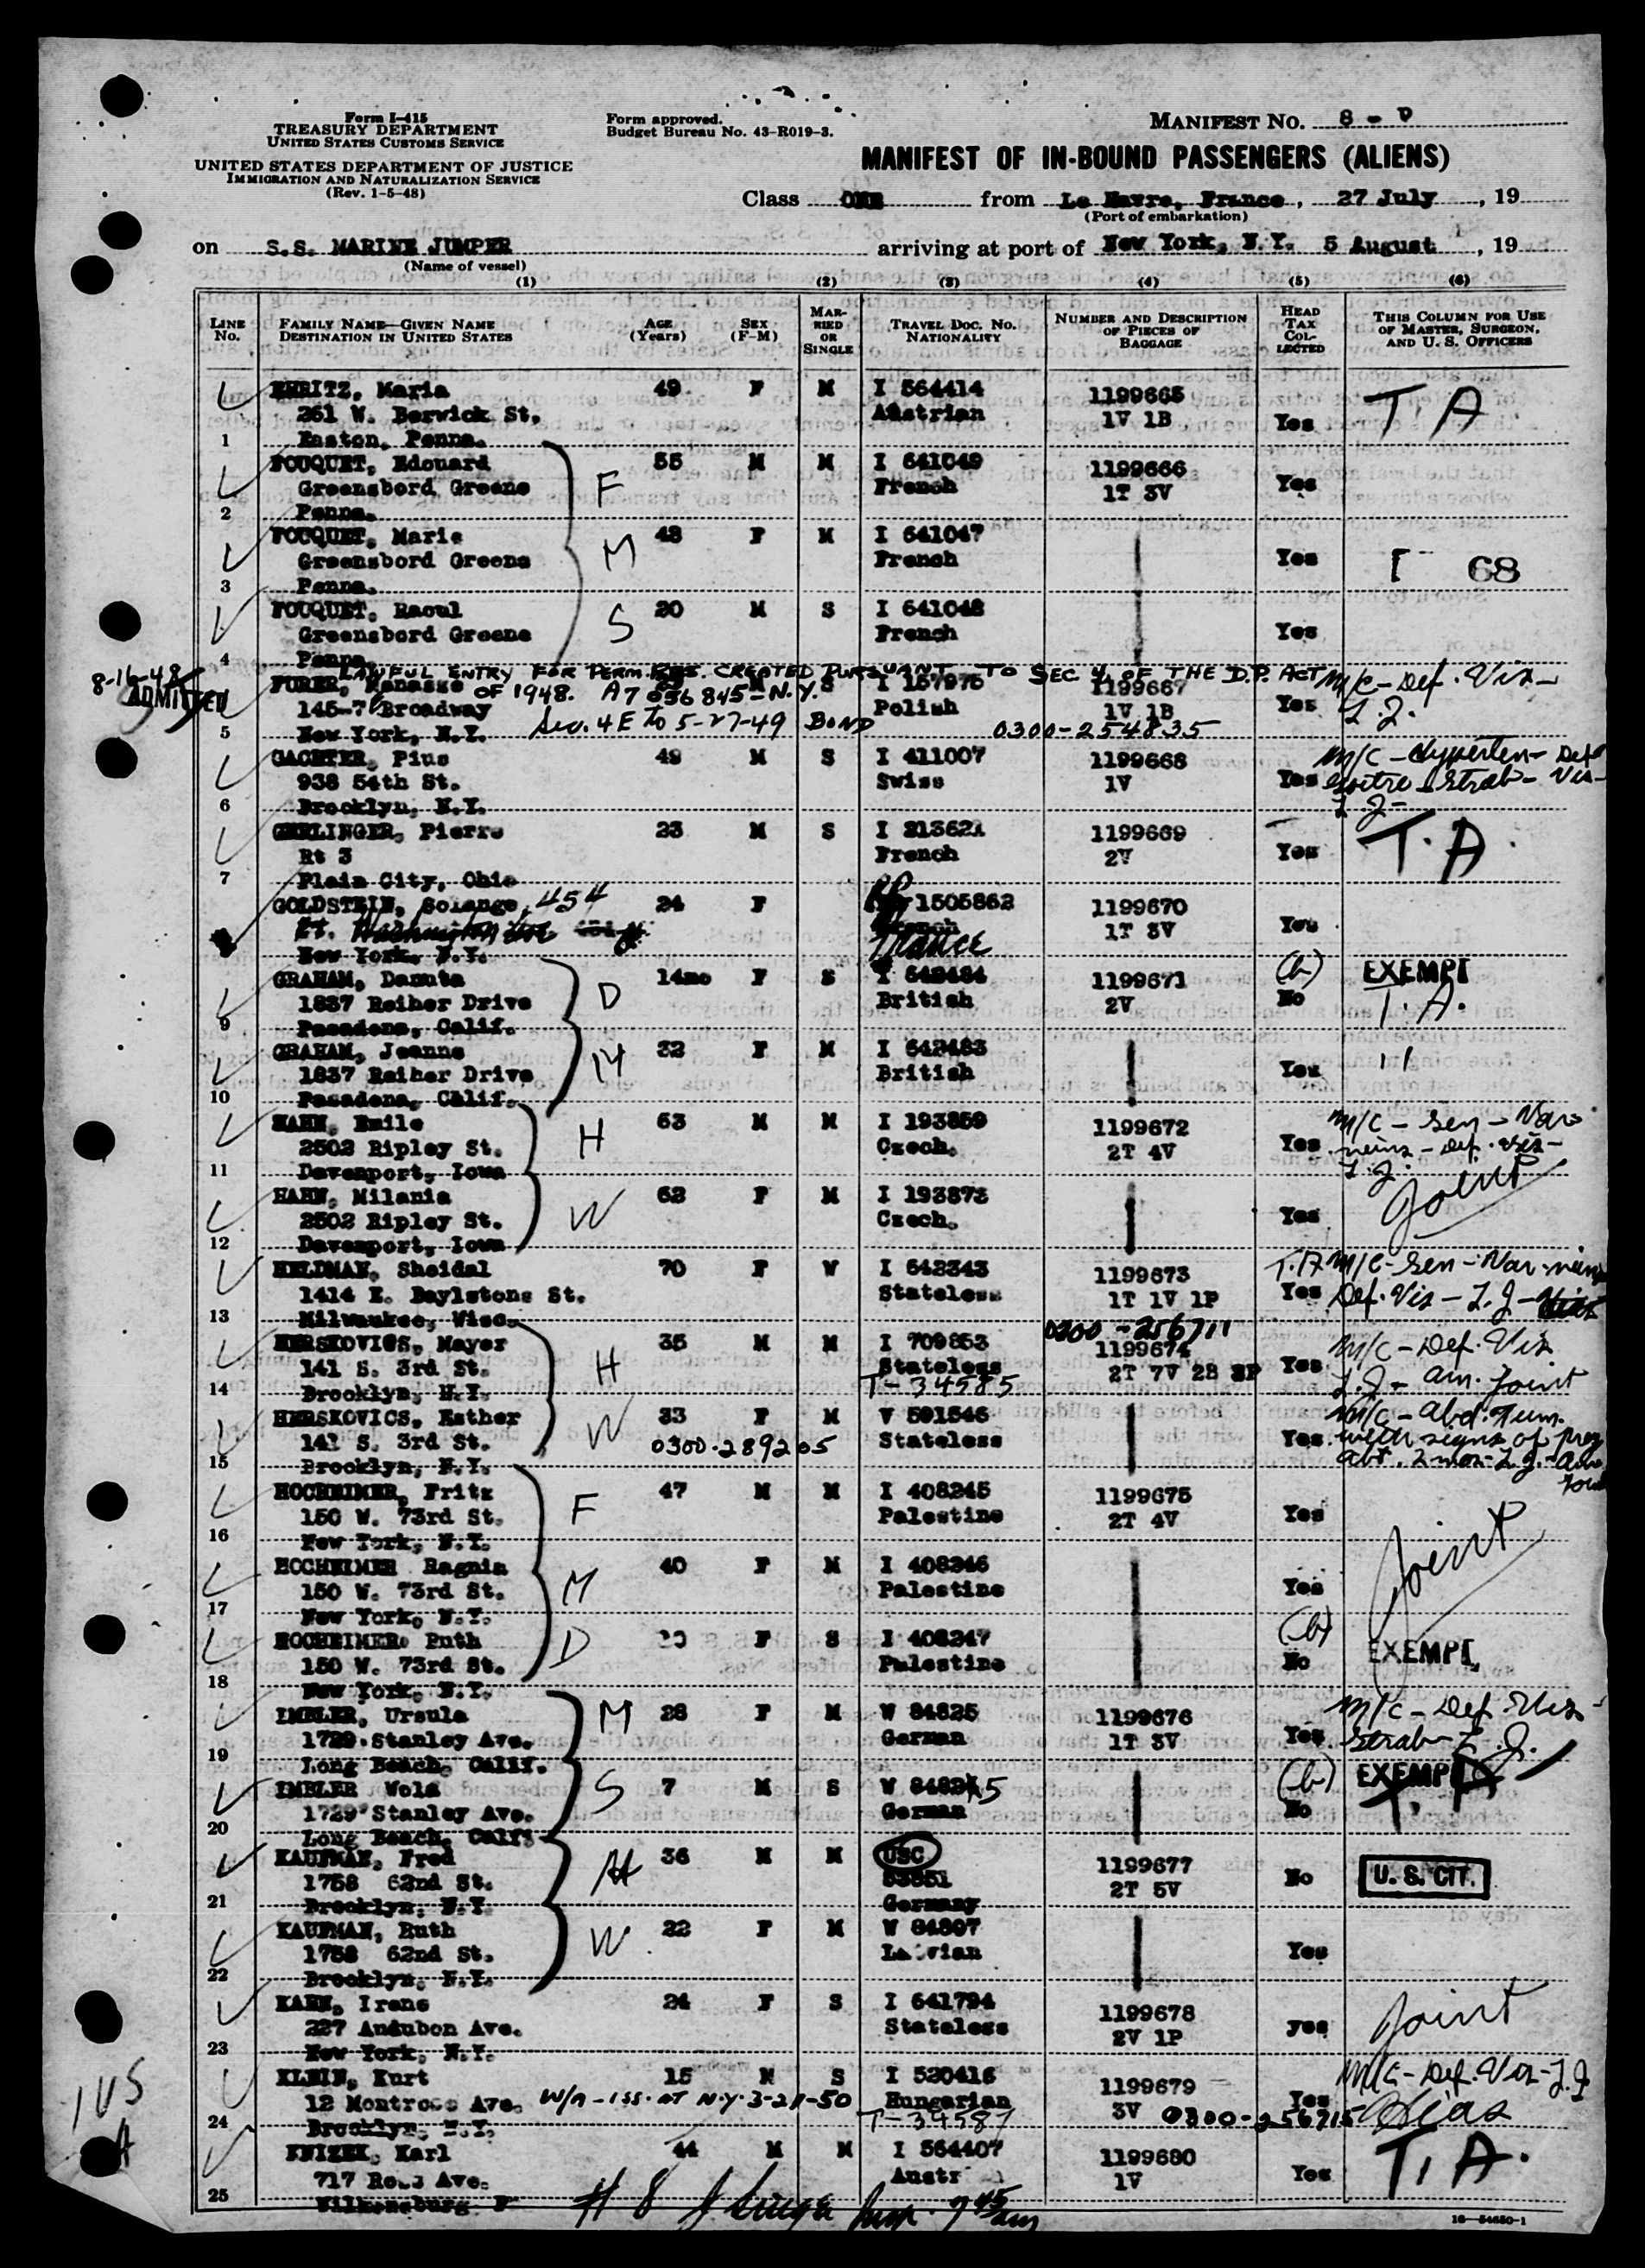 Form I-415
TREASURY DEPARTMENT
UNITED STATES CUSTOMS SERVICE
UNITED STATES DEPARTMENT OF JUSTICE
IMMIGRATION AND NATURALIZATION SERVICE
(Rev. 1-5-48)
Form approved.
Budget Bureau No. 43-R019-3.
MANIFEST NO. 8 - D
MANIFEST OF IN-BOUND PASSENGERS (ALIENS)
Class ONE from Le Havre, France, 27 July, 19
(Port of embarkation)
on S.S. MARINE JUMPER arriving at port of New York, N.Y. 5 August, 19
(Name of vessel)
(1) (2) (3) (4) (5) (6)
LINE NO. FAMILY NAME—GIVEN NAME DESTINATION IN UNITED STATES AGE (Years) SEX (F-M) MARRIED OR SINGLE TRAVEL DOC. NO. NATIONALITY NUMBER AND DESCRIPTION OF PIECES OF BAGGAGE HEAD TAX COLLECTED THIS COLUMN FOR USE OF MASTER, SURGEON, AND U. S. OFFICERS
EHRITZ, Maria 49 F M I 564414 1199665 T. A
261 W. Berwick St. Austrian 1V 1B Yes
1 Easton, Penna.
FOUQUET, Edouard 55 M M I 641049 1199666
Greensbord Greene F French 1T 3V Yes
2 Penna.
FOUQUET, Marie 48 F M I 641047
Greensbord Greene M French Yes 68
3 Penna.
FOUQUET, Raoul 20 M S I 641048
Greensbord Greene S French Yes
4 Penna.
8-16-48 LAWFUL ENTRY FOR PERM. RES. CREATED PURSUANT TO SEC 4 OF THE D.P. ACT M/C - Def. Vis -
ADMITTED FURER, Manasse OF 1948. A7 036 845-N.Y. S I 157975 1199667 L.J.
145-7 Broadway Polish 1V 1B Yes
5 New York, N.Y. Sec. 4 E to 5-27-49 BOND 0300-254835
GACHTER, Pius 49 M S I 411007 1199668 M/C - Hyperten - Def
938 54th St. Swiss 1V Yes Goitre - Strab - Vis -
6 Brooklyn, N.Y. L J -
GERLINGER, Pierre 23 M S I 213621 1199669 T. A.
Rt 3 French 2V Yes
7 Plain City, Ohio
GOLDSTEIN, Solange, 454 24 F 1505862 1199670
Ft. Washington Ave 1T 3V Yes
New York, N.Y. France
GRAHAM, Danuta 14mo F S I 642484 1199671 (b) EXEMPT
1837 Reiher Drive D British 2V No T. A.
9 Pasadena, Calif.
GRAHAM, Joanne 32 F M I 642483
1837 Reiher Drive M British Yes "
10 Pasadena, Calif.
HAHN, Emile 63 M M I 193859 1199672 M/C - Sen - Var
2502 Ripley St. H Czech. 2T 4V Yes veins - Def. Vis -
11 Davenport, Iowa L J.
HAHN, Milania 62 F M I 193873 Joint
2502 Ripley St. W Czech. Yes
12 Davenport, Iowa
HELDMAN, Sheidal 70 F W I 642343 1199673 T.A M/C - Sen - Var. veins
1414 E. Boylstone St. Stateless 1T 1V 1P Yes Def. Vis - L.J -
13 Milwaukee, Wisc.
HERSKOVICS, Mayer 35 M M I 709853 0300-256711 1199674 M/C - Def. Vis
141 S. 3rd St. H Stateless 2T 7V 2B Yes L.J - Am. Joint
14 Brooklyn, N.Y. T-34585
HERSKOVICS, Esther 33 F M V 591546 M/C - Abd. Tum.
141 S. 3rd St. W 0300-289205 Stateless Yes with signs of preg
15 Brooklyn, N.Y. abt. 2 mos - L.J. - Am Joint
HOCHEIMER, Fritz 47 M M I 408245 1199675
150 W. 73rd St. F Palestine 2T 4V Yes
16 New York, N.Y. Joint
HOCHEIMER Ragnia 40 F M I 408246
150 W. 73rd St. M Palestine Yes
17 New York, N.Y.
HOCHEIMER, Ruth F S I 408247 (b) EXEMPT
150 W. 73rd St. D Palestine No
18 New York, N.Y.
IMBLER, Ursula M 28 F M W 84825 1199676 M/C - Def. Vis -
1729 Stanley Ave. German 1T 3V Yes Strab - L.J.
19 Long Beach, Calif.
IMBLER Wola S 7 M S W 84825 (b) EXEMPT
1729 Stanley Ave. German No T. A
20 Long Beach, Calif.
KAUFMAN, Fred 36 M M USC 1199677
1758 62nd St. H 53551 2T 5V No U. S. CIT.
21 Brooklyn, N.Y. Germany
KAUFMAN, Ruth 22 F M W 84807
1758 62nd St. W. Latvian Yes
22 Brooklyn, N.Y.
KAHN, Irene 24 F S I 641794 1199678 Joint
227 Audubon Ave. Stateless 2V 1P yes
23 New York, N.Y.
KLEIN, Kurt 15 M S I 520416 1199679 M/C - Def. Vis - L.J
12 Montrose Ave. W/A - ISS. AT N.Y. 3-21-50 Hungarian 3V Yes Hias
24 Brooklyn, N.Y. T-34587 0300-256715
KNIZEK, Karl 44 M M I 564407 1199680 T. A.
717 Ross Ave. Austr 1V Yes
25 Wilkensburg P
# 8
16—54680-1